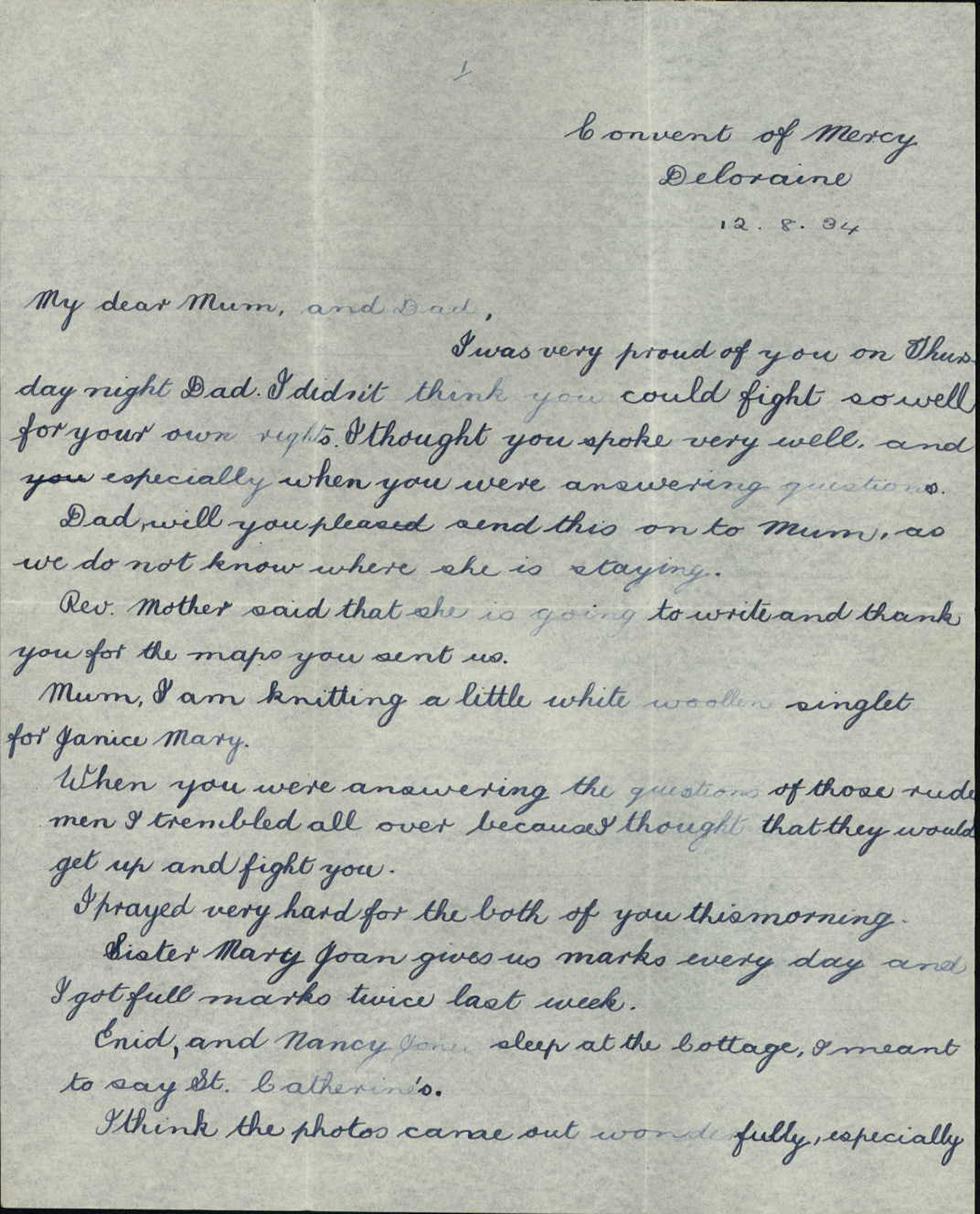 1
Convent of Mercy
Deloraine
12. 8. 34
My dear Mum, and Dad,
I was very proud of you on Thurs-
day night Dad. I didn't think you could fight so well
for your own rights. I thought you spoke very well, and
you especially when you were answering questions.
Dad, will you pleased send this on to Mum, as
we do not know where she is staying.
Rev. Mother said that she is going to write and thank
you for the maps you sent us.
Mum, I am knitting a little white woollen singlet
for Janice Mary.
When you were answering the questions of those rude
men I trembled all over because I thought that they would
get up and fight you.
I prayed very hard for the both of you this morning.
Sister Mary Joan gives us marks every day and
I got full marks twice last week.
Enid, and Nancy sleep at the Cottage, I meant
to say St. Catherine's.
I think the photos came out wonderfully, especially